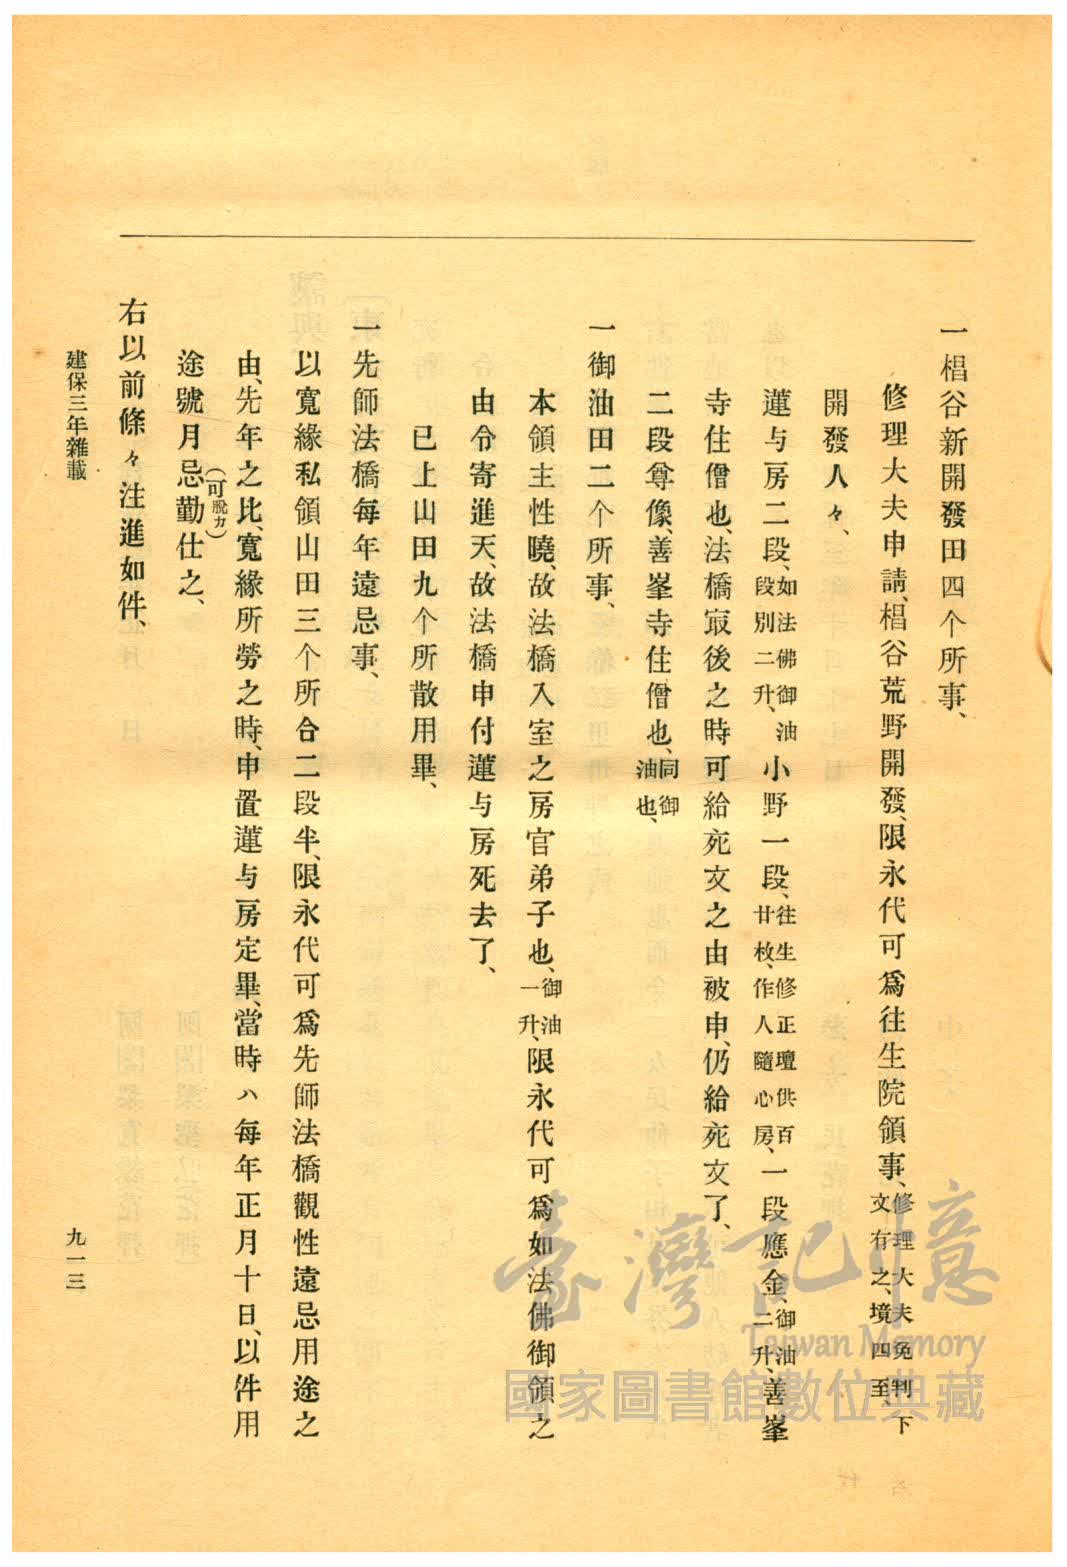 一椙谷新開發田四个所事、
修理大夫申請、椙谷荒野開發、限永代可爲往生院領事、修理大夫免判、下文有之、境四至、
開發人々、
蓮与房二段、如法佛御油段別二升、小野一段、往生修正壇供百廿枚、作人隨心房、一段應金、御油二升、善峯
寺住僧也、法橋㝡後之時可給死文之由被申、仍給死文了、
二段尊像、善峯寺住僧也、同御油也、
一御油田二个所事、
本領主性曉、故法橋入室之房官弟子也、御油一升、限永代可爲如法佛御領之
由令寄進天、故法橋申付蓮与房死去了、
已上山田九个所散用畢、
一先師法橋每年遠忌事、
以寬緣私領山田三个所合二段半、限永代可爲先師法橋觀性遠忌用途之
由、先年之比、寬緣所勞之時、申置蓮与房定畢、當時ハ每年正月十日、以件用
途號月忌勤仕之、
（可脫カ）
右以前條々注進如件、
建保三年雜載
九一三
臺灣記憶
Taiwan Memory
國家圖書館數位典藏